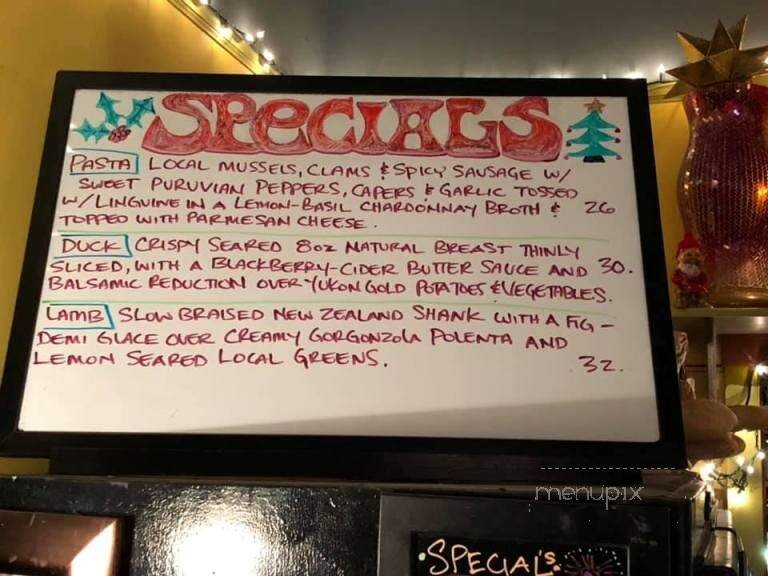 SPECIALS
PASTA LOCAL MUSSELS, CLAMS & SPICY SAUSAGE W/
SWEET PURUVIAN PEPPERS, CAPERS & GARLIC TOSSED
W/LINGUINE IN A LEMON-BASIL CHARDONNAY BROTH & 26
TOPPED WITH PARMESAN CHEESE.
DUCK CRISPY SEARED 8oz NATURAL BREAST THINLY
SLICED, WITH A BLACKBERRY-CIDER BUTTER SAUCE AND 30.
BALSAMIC REDUCTION OVER YUKON GOLD POTATOES & VEGETABLES.
LAMB SLOW BRAISED NEW ZEALAND SHANK WITH A FIG-
DEMI GLACE OVER CREAMY GORGONZOLA POLENTA AND
LEMON SEARED LOCAL GREENS. 32.
menupix
SPECIAL'S